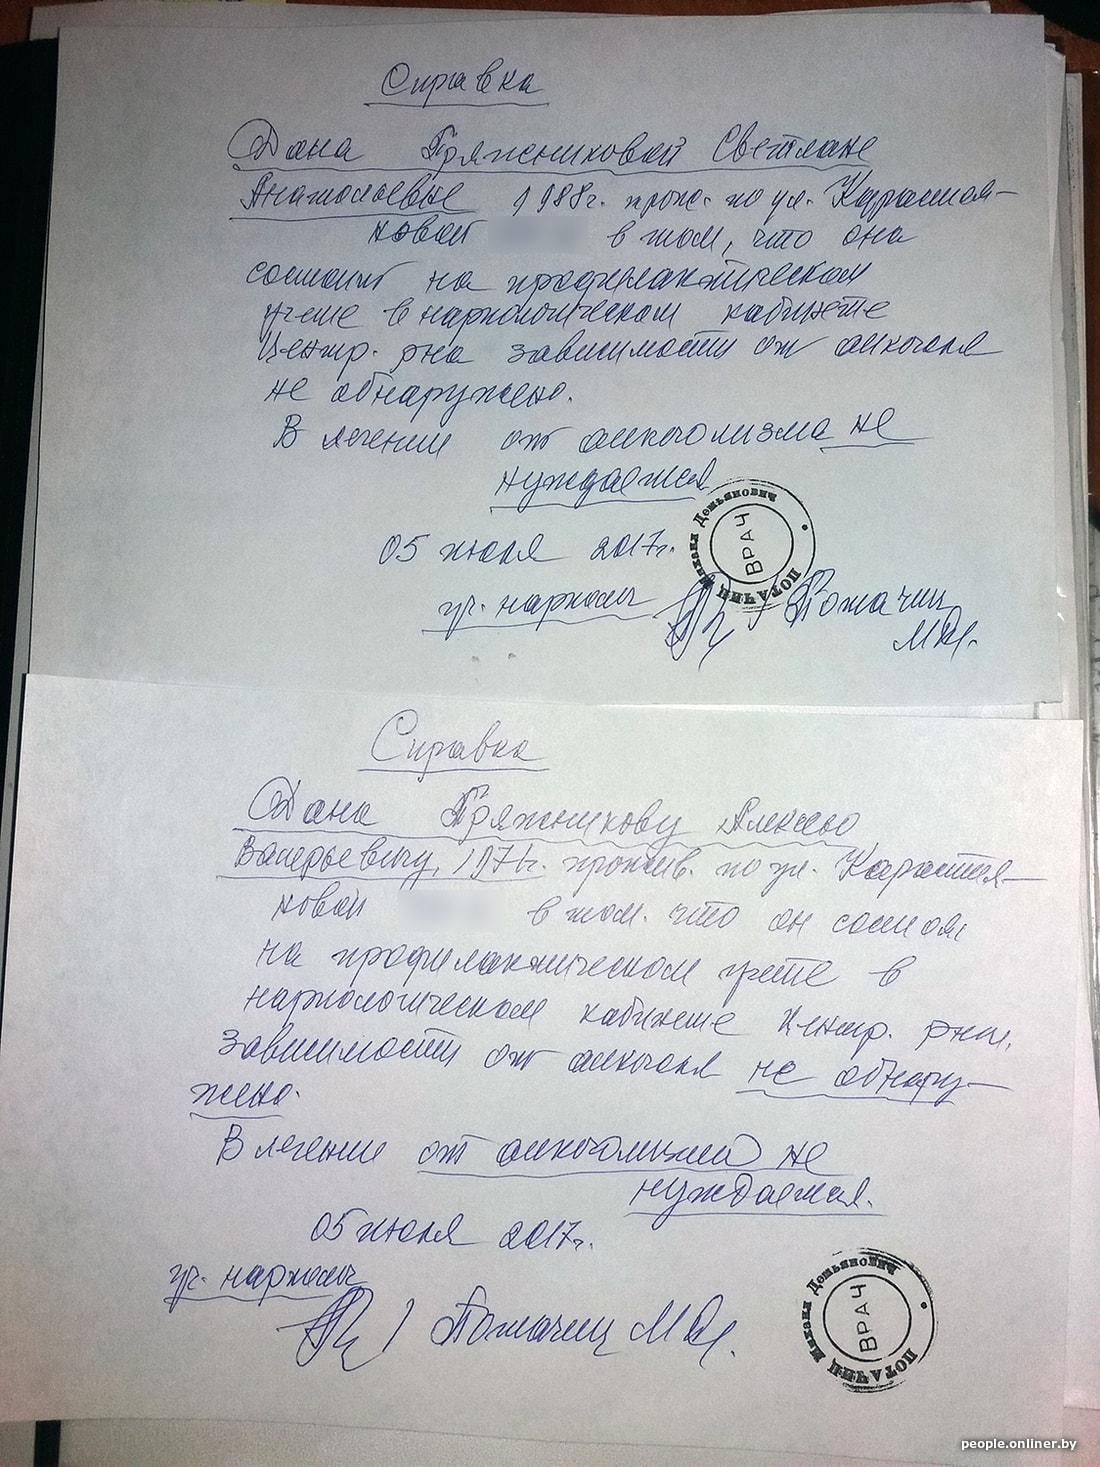 Справка
Дана Пряжниковой Светлане
Анатольевне 1988г. прож. по ул. Карастоя-
новой в том, что она
состоит на профилактическом
учете в наркологическом кабинете
Центр. рна зависимости от алкоголя
не обнаружено.
В лечении от алкоголизма не
нуждается
05 июля 2017г.
уч. нарколог Потачиц
М.Д.
ПОТАЧИЦ Михаил Демьянович
ВРАЧ
Справка
Дана Пряжникову Алексею
Валерьевичу, 1971г. прожив. по ул. Карастоя-
новой в том. что он состоит
на профилактическом учете в
наркологическом кабинете Центр. рна.
Зависимости от алкоголя не обнару-
жено.
В лечении от алкоголизма не
нуждается.
05 июля 2017г.
уч. нарколог
Потачиц М.Д.
ПОТАЧИЦ Михаил Демьянович
ВРАЧ
people.onliner.by